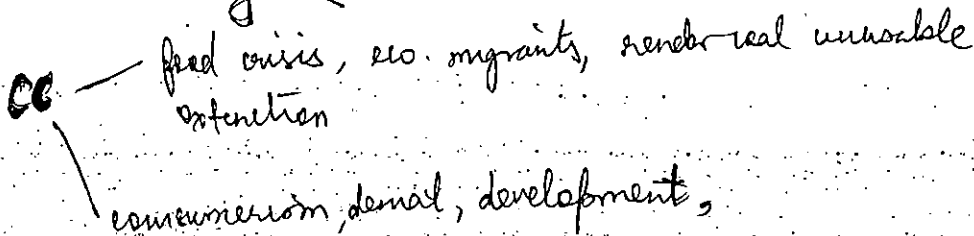 CC - food crisis, eco. migrants, render real unusable
extinction
consumerism, denial, development,